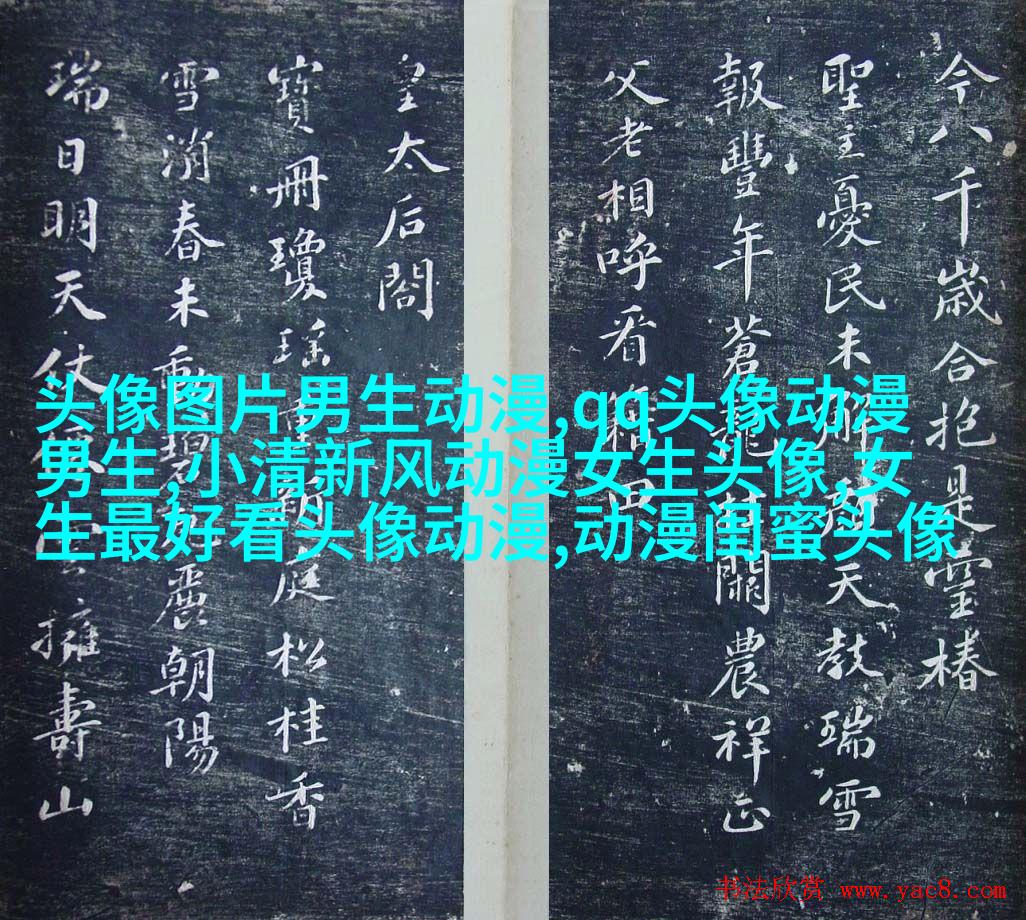 今八千歲合抱是靈椿
聖主憂民未解顏天教瑞雪
報豐年蒼龍闕農祥正
父老相呼看田
皇太后閣
寶冊瓊瑤重庭松桂香
雪消春未動麗朝陽
瑞日明天仗擁壽山
头像图片男生动漫,qq头像动漫
男生,小清新风动漫女生头像,女
生最好看头像动漫,动漫闺蜜头像
书法欣赏 www.yac8.com